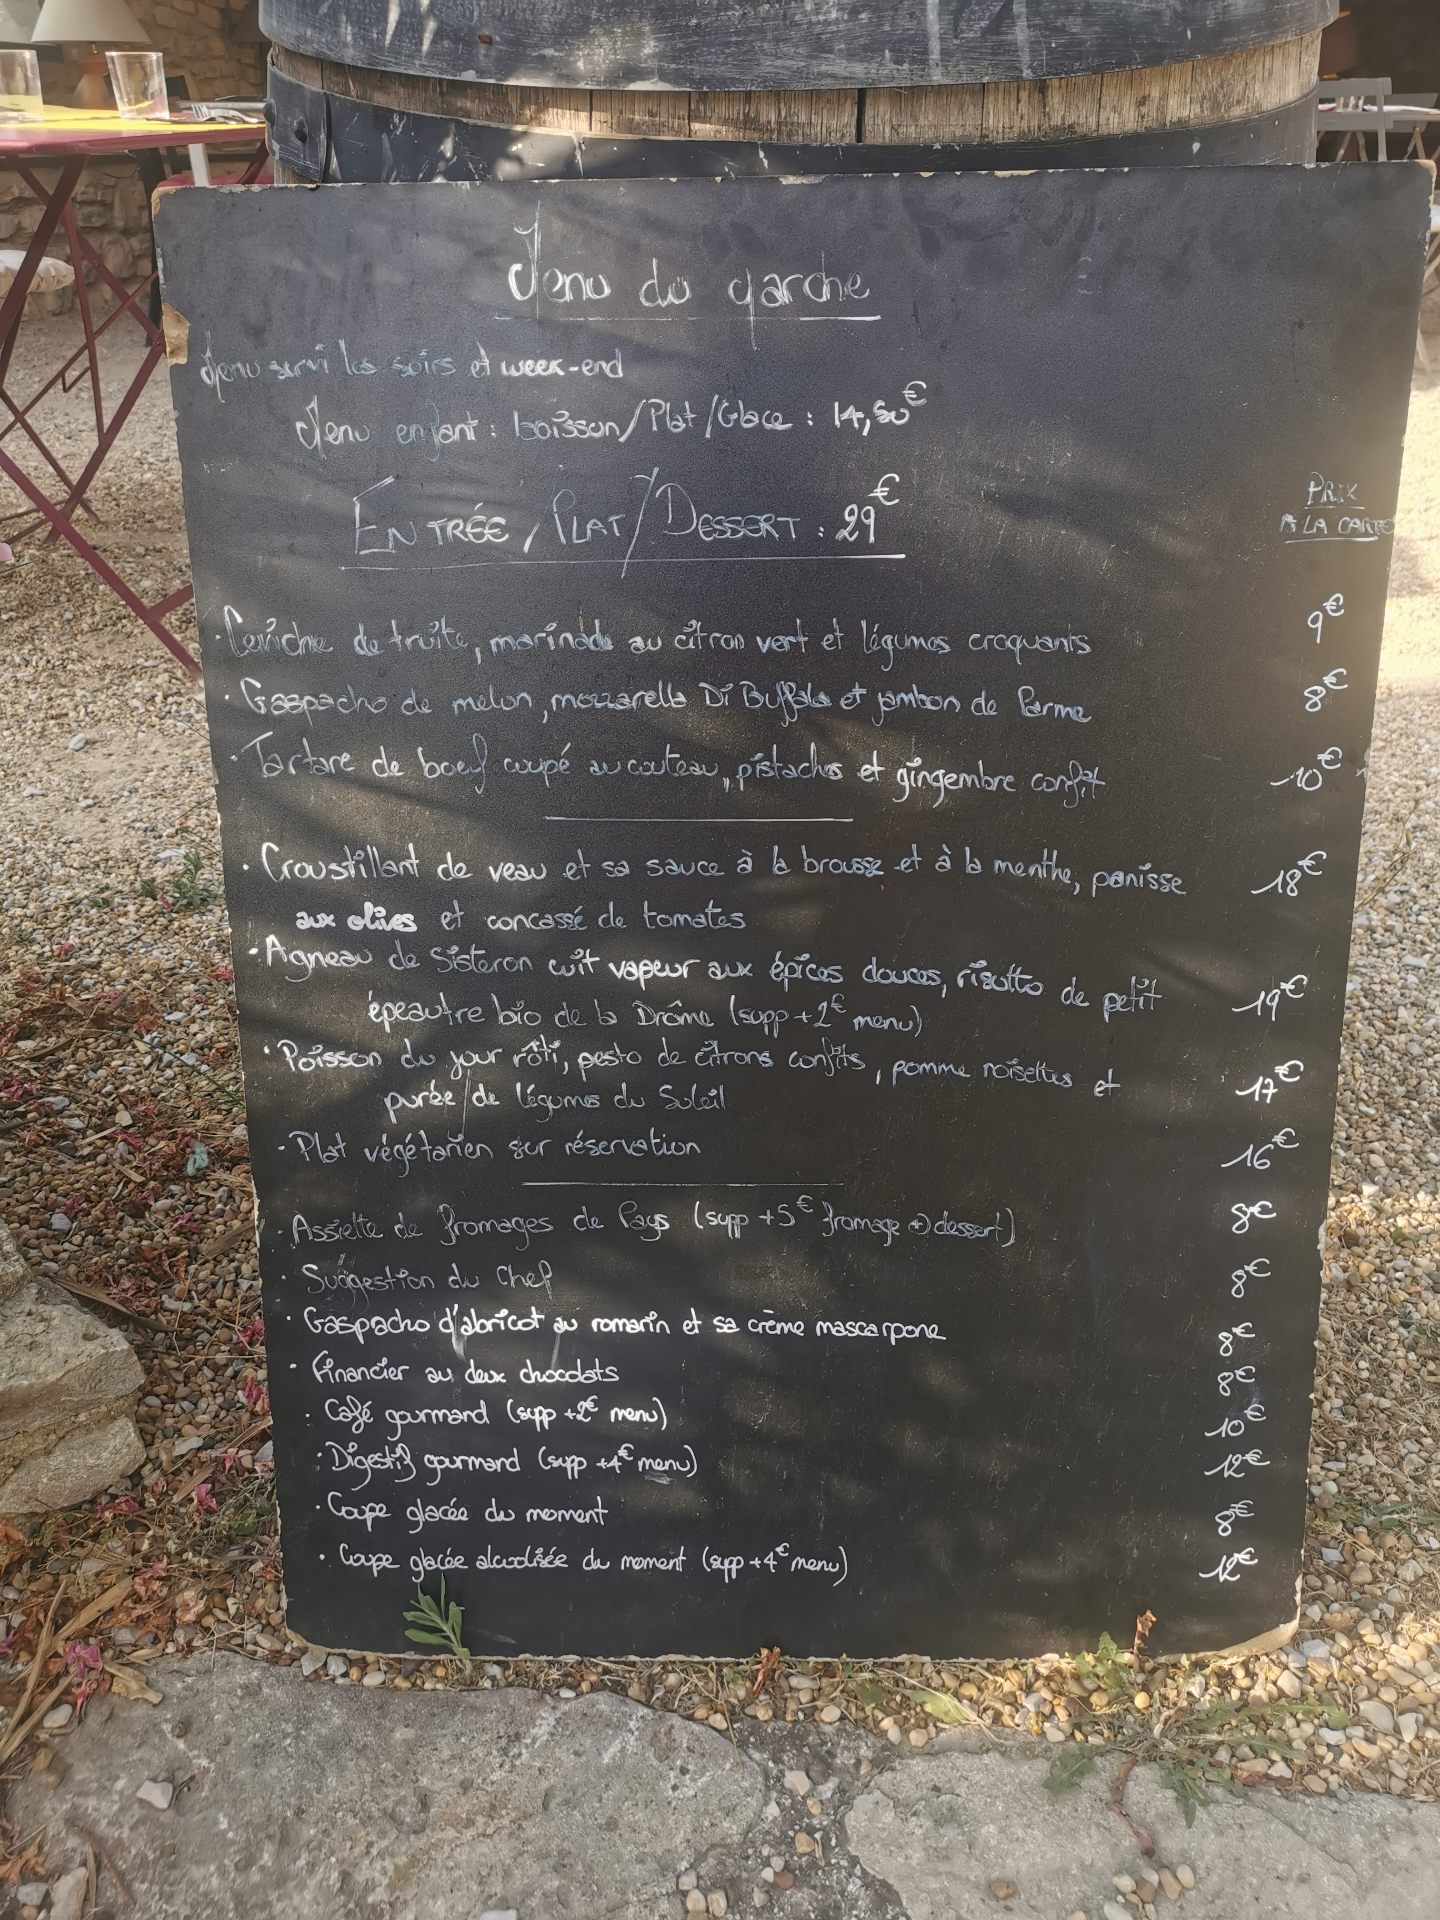 Menu du Marche
Menu servi les soirs et week-end
Menu enfant : boisson/Plat/Glace : 14,50€
ENTRÉE/PLAT/DESSERT : 29€
PRIX
A LA CARTE
· Ceviche de truite, marinade au citron vert et légumes croquants 9€
· Gaspacho de melon, mozzarella Di Buffala et jambon de Parme 8€
· Tartare de boeuf coupé au couteau, pistaches et gingembre confit 10€
· Croustillant de veau et sa sauce à la brousse et à la menthe, panisse 18€
aux olives et concassé de tomates
· Agneau de Sisteron cuit vapeur aux épices douces, risotto de petit 19€
épeautre bio de la Drôme (supp +2€ menu)
· Poisson du jour rôti, pesto de citrons confits, pomme noisettes et 17€
purée de légumes du Soleil
- Plat végétarien sur réservation 16€
· Assiette de fromages de Pays (supp +5€ fromage +) dessert) 8€
· Suggestion du Chef 8€
· Gaspacho d'abricot au romarin et sa crème mascarpone 8€
· Financier au deux chocolats 8€
· Café gourmand (supp +2€ menu) 10€
· Digestif gourmand (supp +4€ menu) 12€
· Coupe glacée du moment 8€
· Coupe glacée alcoolisée du moment (supp +4€ menu) 12€